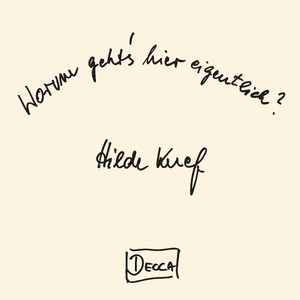 Worum geht's hier eigentlich?
Hilde Knef
DECCA